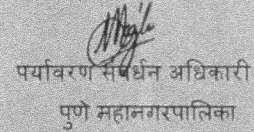 पर्यावरण संवर्धन अधिकारी
पुणे महानगरपालिका